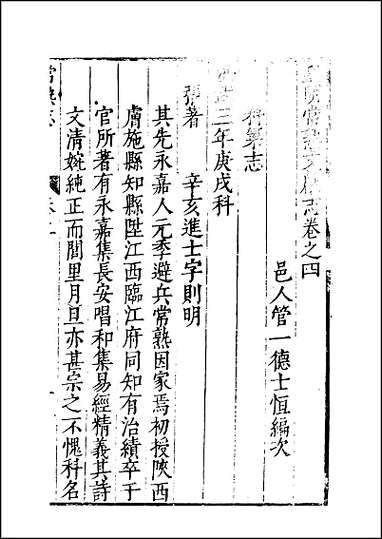 皇明常熟文獻志卷之四
邑人管一德士恒編次
科第志
洪武三年庚戌科
張著 辛亥進士字則明
其先永嘉人元季避兵常熟因家焉初授陜西
膚施縣知縣陞江西臨江府同知有治績卒于
官所著有永嘉集長安唱和集易經精義其詩
文清婉純正而閭里月旦亦甚宗之不愧科名